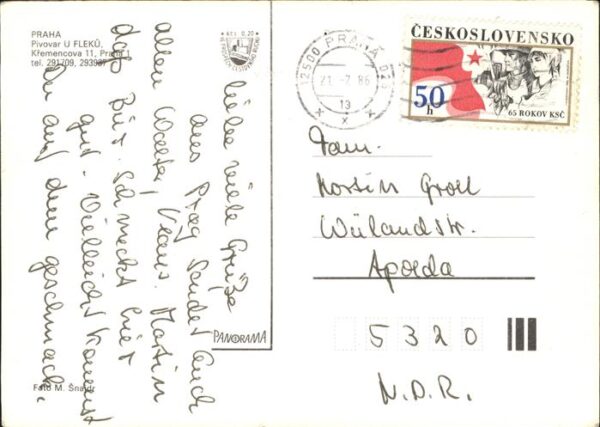 PRAHA
Pivovar U FLEKŮ,
Křemencova 11, Praha 1
tel. 291709, 293937
KČS 0,20
Viele viele Grüße
aus Prag sendet Euch
allen Walter, Klaus. Martin
das Bier schmeckt hier
gut. Vielleicht kommst
Du auf den geschmack.
Foto M. Šnajdr
PANORAMA
12500 PRAHA 025
21.-7.86
13
ČESKOSLOVENSKO
50 h
65 ROKOV KSČ
Fam.
Martin Groll
Wielandstr.
Apolda
5320
N.D.R.